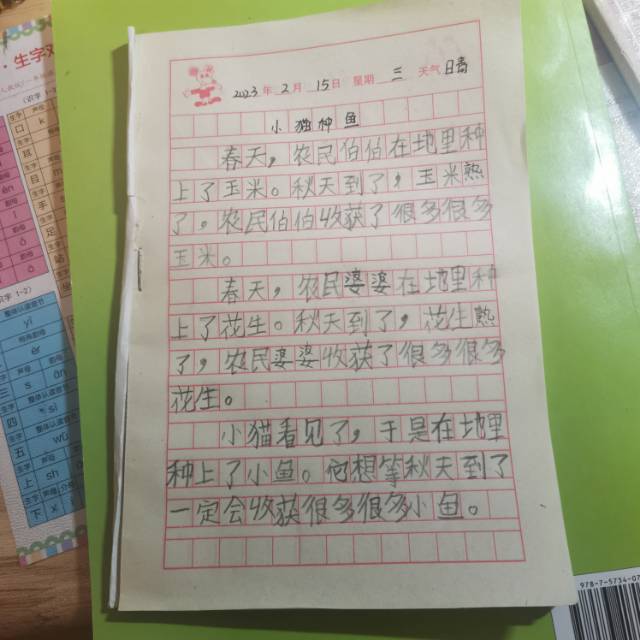 2023年2月15日 星期三 天气晴
小猫种鱼
春天，农民伯伯在地里种
上了玉米。秋天到了，玉米熟
了。农民伯伯收获了很多很多
玉米。
春天，农民婆婆在地里种
上了花生。秋天到了，花生熟
了，农民婆婆收获了很多很多
花生。
小猫看见了，于是在地里
种上了小鱼。他想等秋天到了
一定会收获很多很多小鱼。
生字
978-7-5734-07